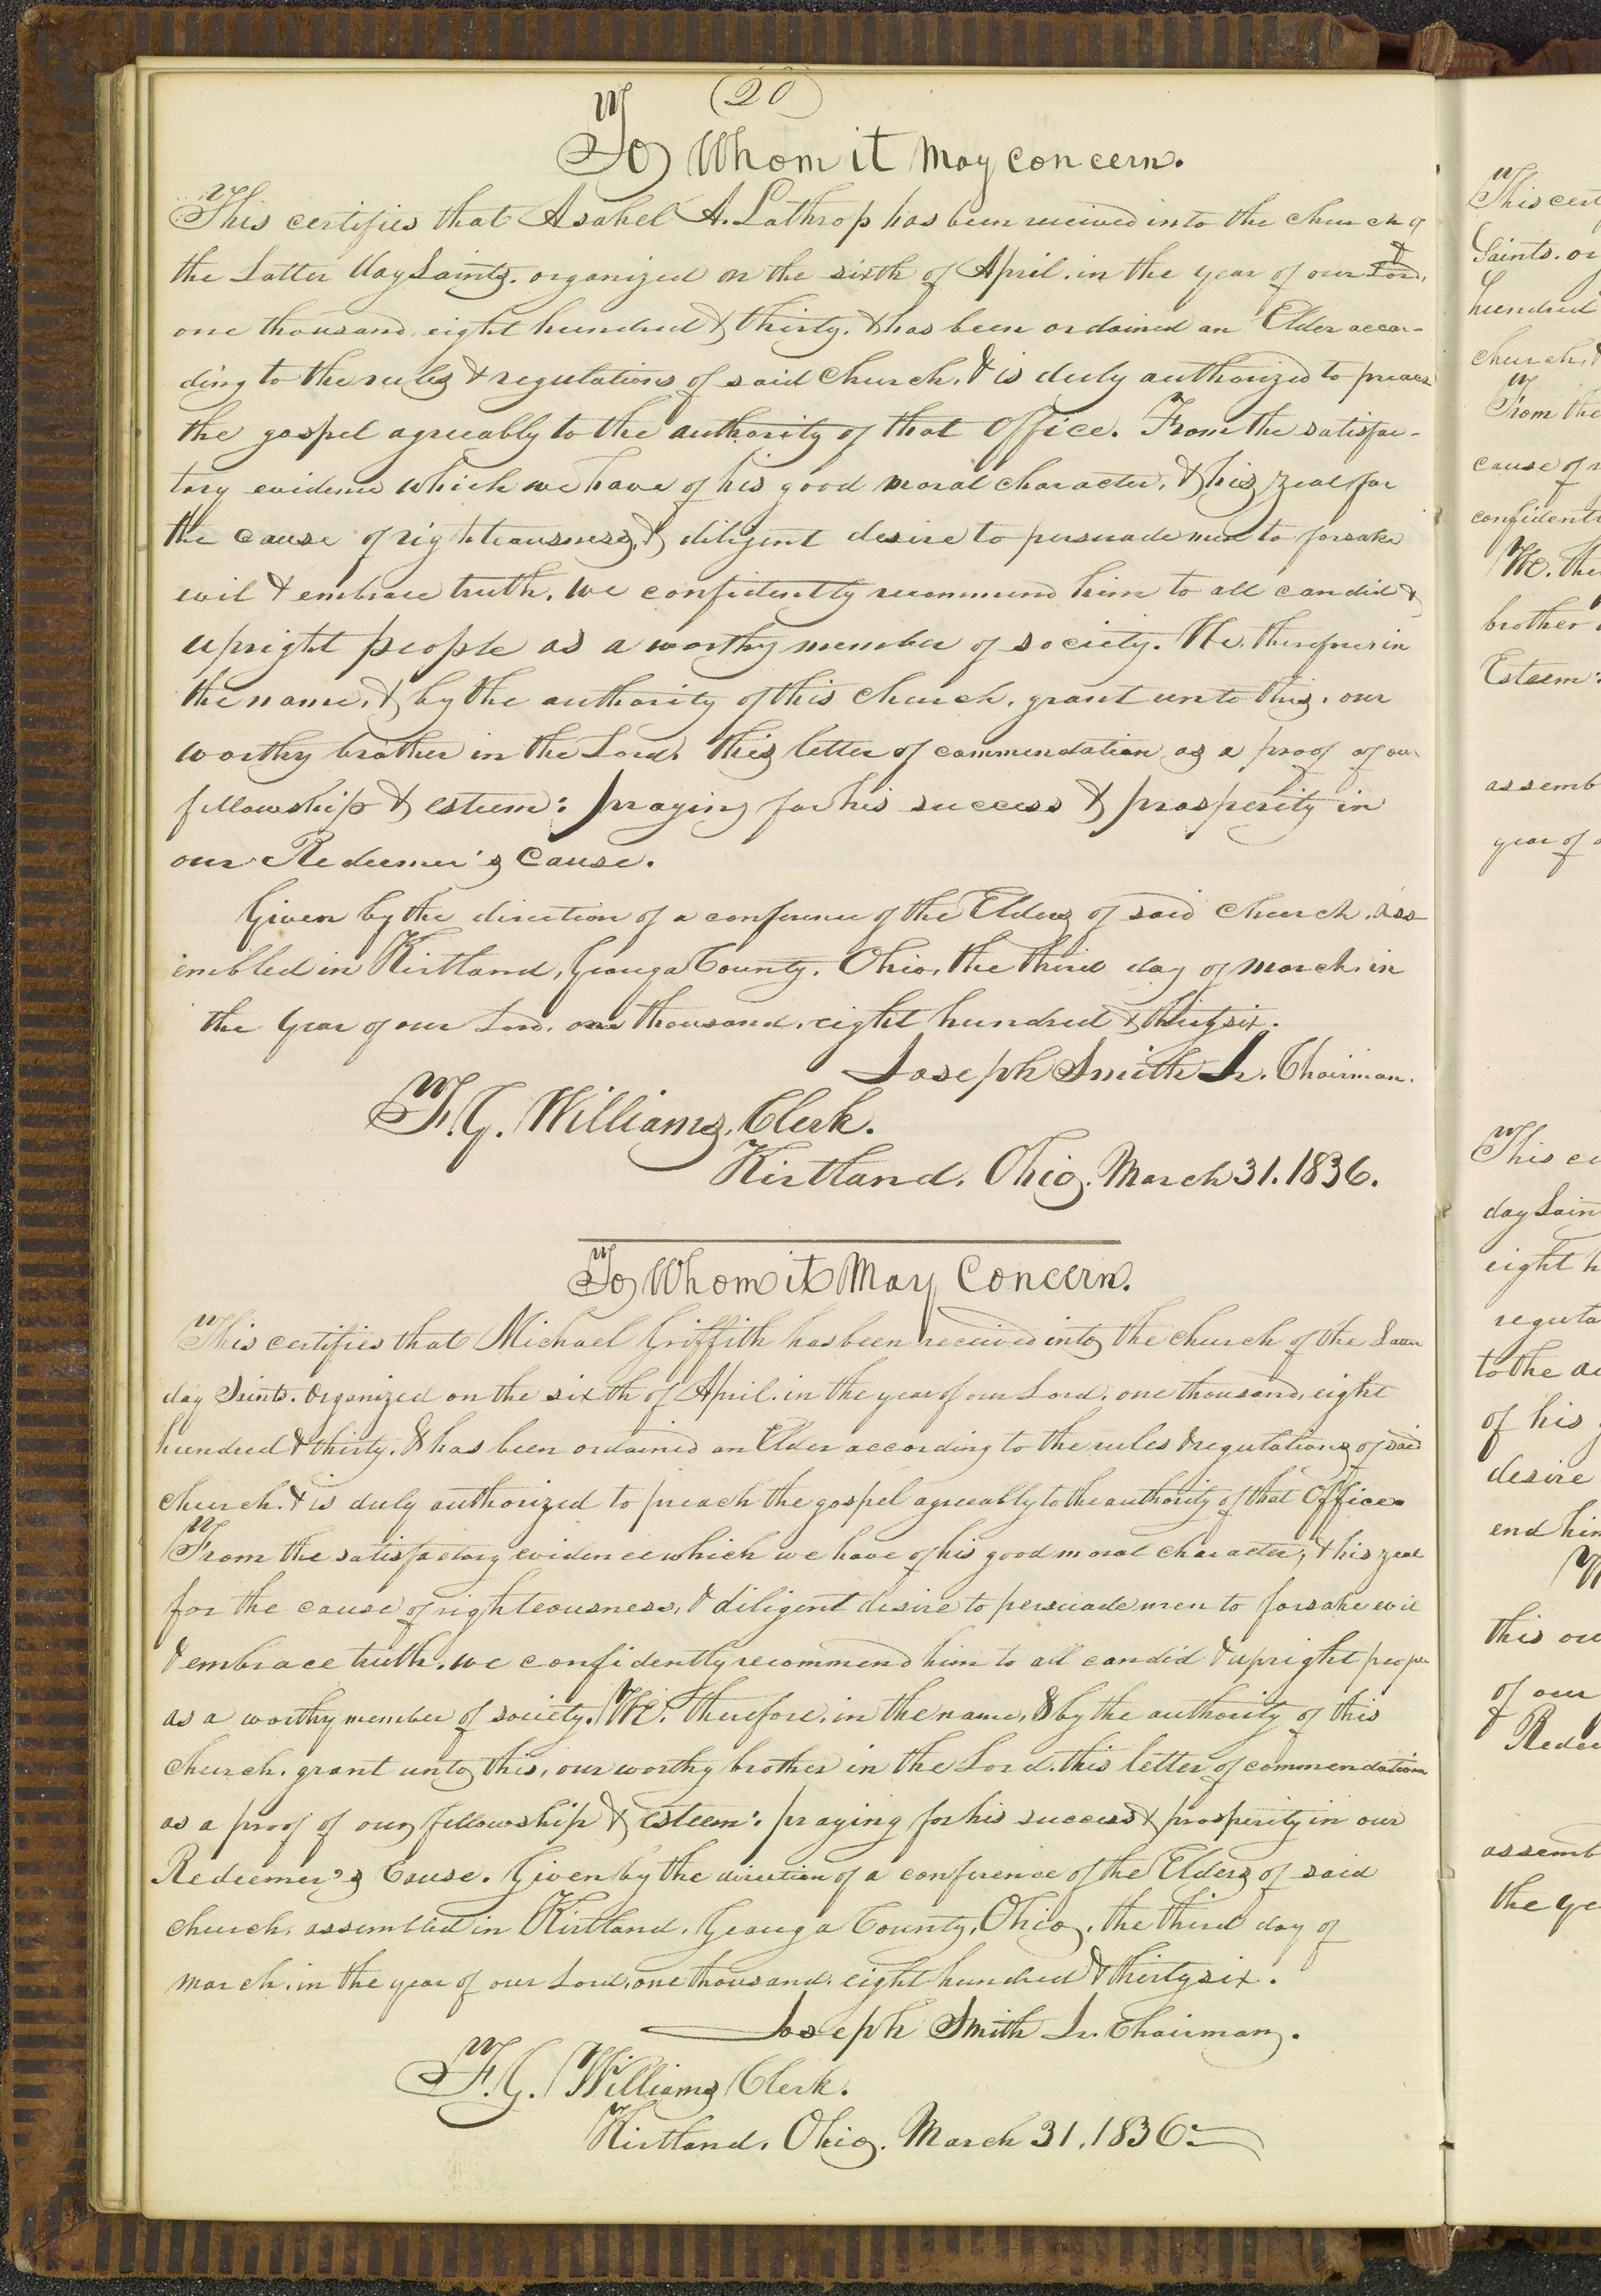 (20)
To Whom it May concern.
This certifies that Asahel A. Lathrop has been received into the church of
the Latter day Saints. organized on the sixth of April. in the year of our Lord,
one thousand, eight hundred & thirty. & has been ordained an Elder accor-
ding to the rules & regulations of said Church, & is duly authorized to preach
the gospel agreeably to the authority of that Office. From the satisfac-
tory evidence which we have of his good moral character, & his zeal for
the cause of righteousness, & diligent desire to persuade men to forsake
evil & embrace truth, we confidently recommend him to all candid &
upright people as a worthy member of society. We, therefore, in
the name, & by the authority of this church, grant unto this, our
worthy brother in the Lord, this letter of commendation as a proof of our
fellowship & esteem: praying for his success & prosperity in
our Redeemer's Cause.
Given by the direction of a conference of the Elders of said church, ass-
embled in Kirtland, Geauga County, Ohio, the third day of March, in
the Year of our Lord, one thousand, eight hundred & thirty six.
Joseph Smith Jr. Chairman.
F. G. Williams, Clerk.
Kirtland, Ohio, March 31. 1836.
To Whom it May Concern.
This certifies that Michael Griffith has been received into the church of the Latter
day Saints. Organized on the sixth of April. in the year of our Lord, one thousand, eight
hundred & thirty. & has been ordained an Elder according to the rules & regulations of said
church. & is duly authorized to preach the gospel agreeably to the authority of that Office.
From the satisfactory evidence which we have of his good moral character, & his zeal
for the cause of righteousness, & diligent desire to persuade men to forsake evil
& embrace truth, we confidently recommend him to all candid & upright people
as a worthy member of society. We, therefore, in the name, & by the authority of this
church, grant unto this, our worthy brother in the Lord, this letter of commendation
as a proof of our fellowship & esteem: praying for his success & prosperity in our
Redeemer's Cause. Given by the direction of a conference of the Elders of said
church, assembled in Kirtland, Geauga County, Ohio, the third day of
march, in the year of our Lord, one thousand, eight hundred & thirty six.
Joseph Smith Jr. Chairman.
F. G. Williams Clerk.
Kirtland, Ohio. March 31, 1836
This cert
Saints. or
hundred
church, &
From the
cause of r
confidentl
We, the
brother
Esteem:
assemb
year of o
This ce
day Sain
eight h
regula
to the au
of his
desire
end him
this our
of our
& Redee
assemb
the ye